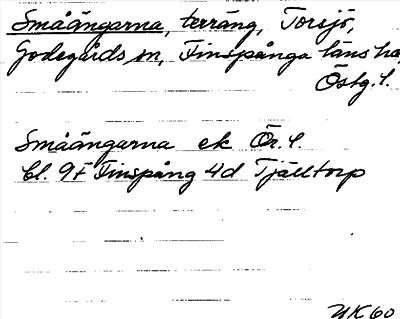 Småängarna, terräng, Torsjö,
Godegårds sn, Finspånga läns hd,
Östg. l.
Småängarna ek Ör. l.
Bl. 9f Finspång 4d Tjälltorp
UK 60